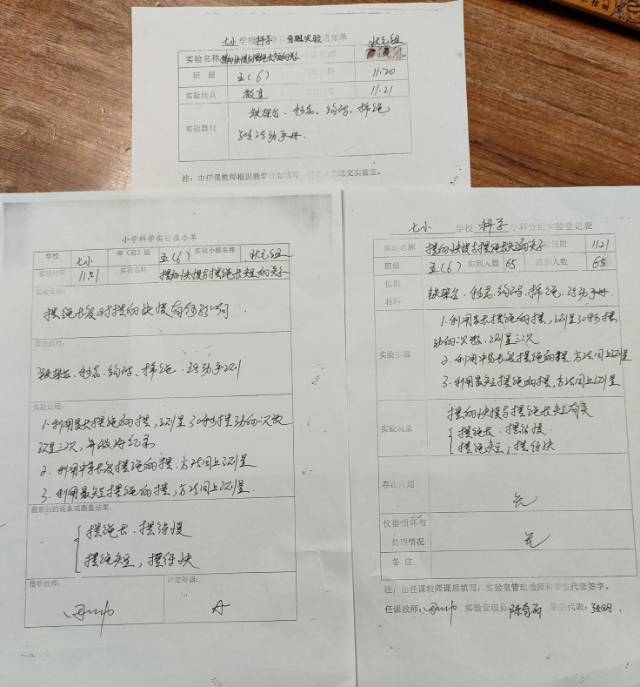 七小 学校 科学 学科 分组实验通知单
实验名称 摆的快慢与摆绳长短的关系
状元组
班级 五(6) 11.20
实验地点 教室 11.21
实验器材 铁架台、秒表、钩码、棉绳
学生活动手册
注:由任课教师根据教学计划填写,送交实验室。
小学科学实验报告单
学校 七小 年(班)级 五(6) 实验小组名称 状元组
实验时间 11.21 实验名称 摆的快慢与摆绳长短的关系
摆绳长短对摆的快慢有何影响
实验器材:
铁架台、秒表、钩码、棉绳、活动手册
实验过程:
1.利用最长摆绳的摆,测量30秒摆动的次数
测量三次,并做好记录
2.利用中等长度摆绳的摆,方法同上测量
3.利用最短摆绳的摆,方法同上测量.
观察到的现象或测量结果:
摆绳长、摆得慢
摆绳短,摆得快
指导教师: 评定等级:
A
七小 学校 科学 学科分组实验登记表
实验名称 摆的快慢与摆绳长短的关系 日期 11.21
班级 五(6) 应到人数 65 实到人数 65
仪器
材料
铁架台、秒表、钩码、棉绳、活动手册
实验步骤
1.利用最长摆绳的摆,测量30秒摆
动的次数,测量三次
2.利用中等长度摆绳的摆,方法同上测量
3.利用最短摆绳的摆,方法同上测量
实验现象
摆的快慢与摆绳长短有关
摆绳长,摆得慢
摆绳短,摆得快
存在问题
无
仪器损坏与
处理情况
无
备注
注:由任课教师课后填写,实验室管理教师和学生代表签字。
任课教师: 实验管理员: 学生代表: 张明